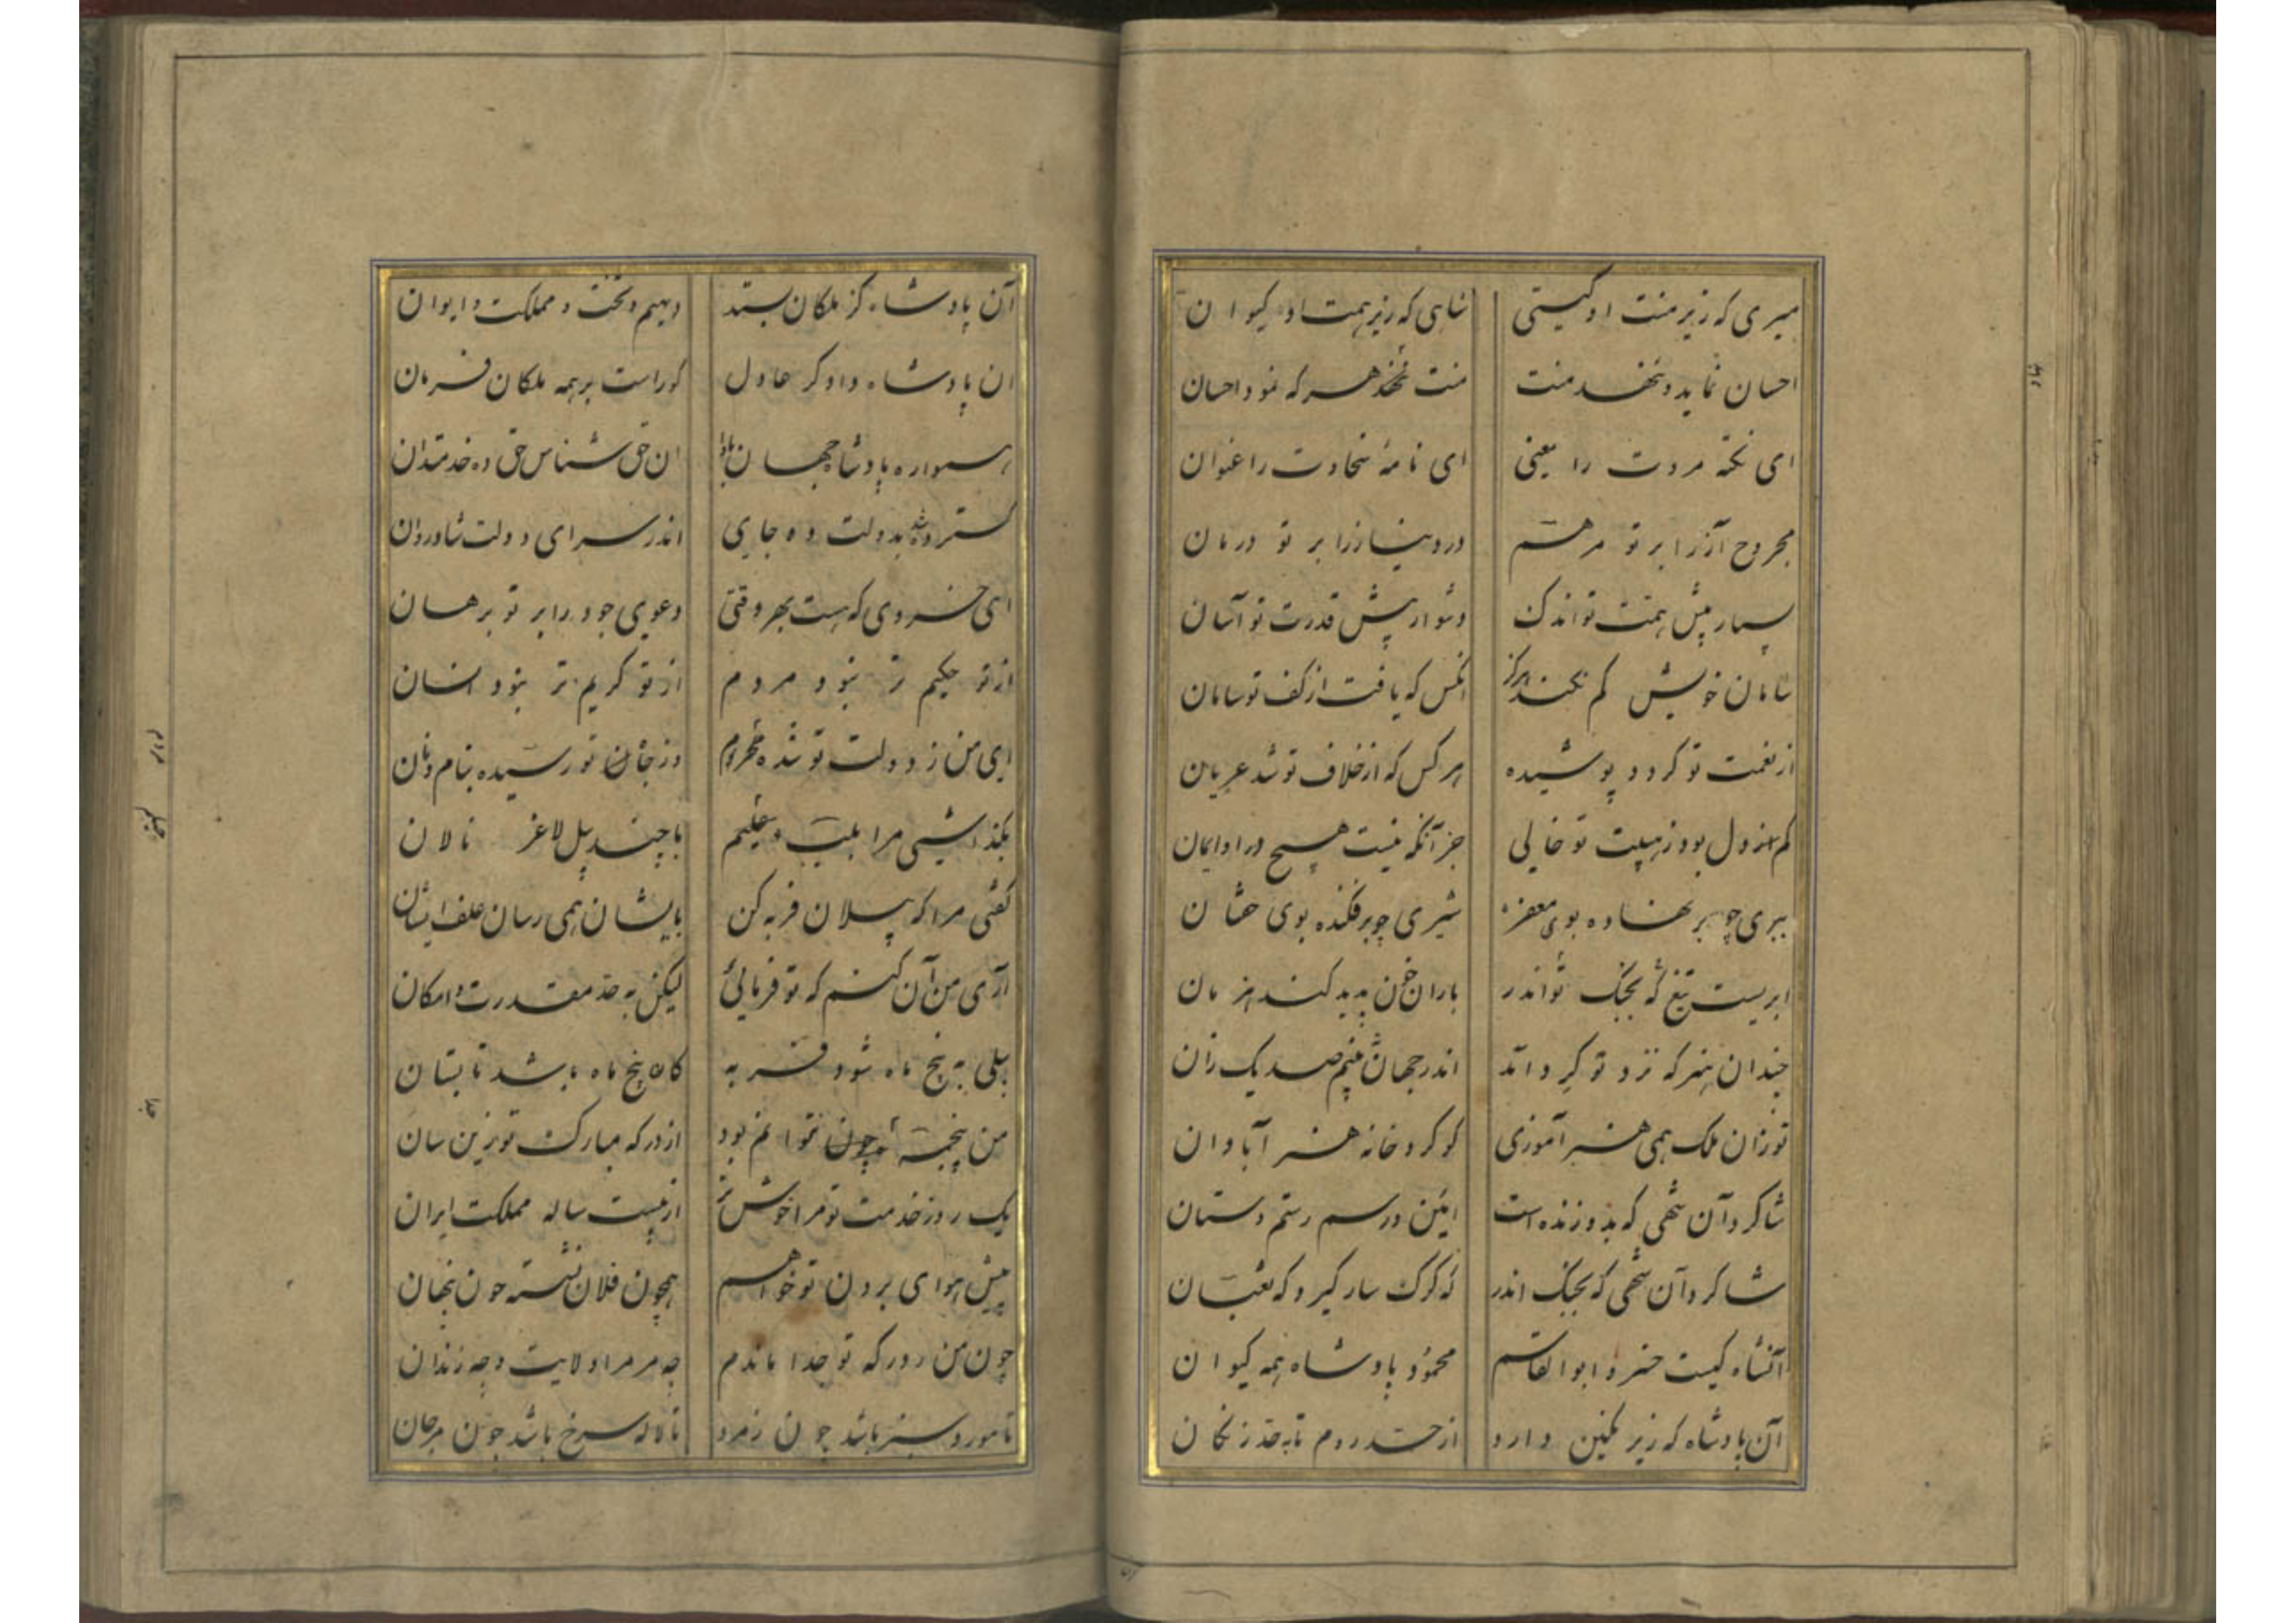 میری که زیر منت او گیتی شاهی که زیر همت او کیوان
احسان نماید و ننهد منت منت نهد هر که نمود احسان
ای نکته مروت را معنی ای نامهٔ سخاوت را عنوان
مجروح آز را بر تو مرهم درد نیاز را بر تو درمان
بسیار پیش همت تو اندک دشوار پیش قدرت تو آسان
سامان خویش کم نکند هرگز انکس که یافت از کف تو سامان
از نعمت تو کردد پوشیده هر کس که از خلاف تو شد عریان
کم از دل بود ز هیبت تو خالی جز آنکه نیست هیچ در او ایمان
ببری چو بر نهاده بوی مغفر شیری چو برفکنده بوی خفتان
ابریست تیغ تو که بجنک اندر باران خون پدید کند هزمان
چندان هنر که نزد تو کرد آمد اندر جهان نبینم صد یک زان
تو زان ملک همی هنر آموزی کو کرد خانه هنر آبادان
شاکرد آن شهی که بدو زنده است ایین و رسم رستم دستان
شاکرد آن شهی که بجنک اندر که کرک سار کیرد و که ثعبان
آنشاه کیست خسرو ابوالقاسم محمود پادشاه همه کیوان
آن پادشاه که زیر نکین دارد از حد روم تا به حد زنکان
آن پادشاه کز ملکان بستد دیهیم و تخت و مملکت و ایوان
ان پادشاه دادکر عادل کوراست بر همه ملکان فرمان
همواره پادشاه جهان بادا ان حق شناس حق ده خدمتدان
کسترده شد بدولت ده جای اندر سرای دولت شادروان
ای خسروی که هست بهر وقتی دعوی جود را بر تو برهان
از تو حکیم تر نبود مردم از تو کریم تر نبود انسان
ای من ز دولت تو شده مردم وز جان تو رسیده بنام و نان
بکذاشتی مرا با چند پیل لاغر نالان
کفتی مرا که پیلان فربه کن بایشان همی رسان علف ایشان
آری من آن کنم که تو فرمائی لیکن به حد مقدرت و امکان
پیلی به پنج ماه شود فربه کان پنج ماه باشد تابستان
من پنجمه چون توانم بود از درکه مبارک تو زین سان
یک روز خدمت تو مرا خوش تر از بیست ساله مملکت ایران
پیش سوای بردن تو خواهم همچون فلان نشسته چون بهمان
چون من ز درکه تو جدا ماندم چه مر مرا ولایت و چه زندان
تا مورد سبز باشد چون زمرد تا لاله سرخ باشد چون مرجان